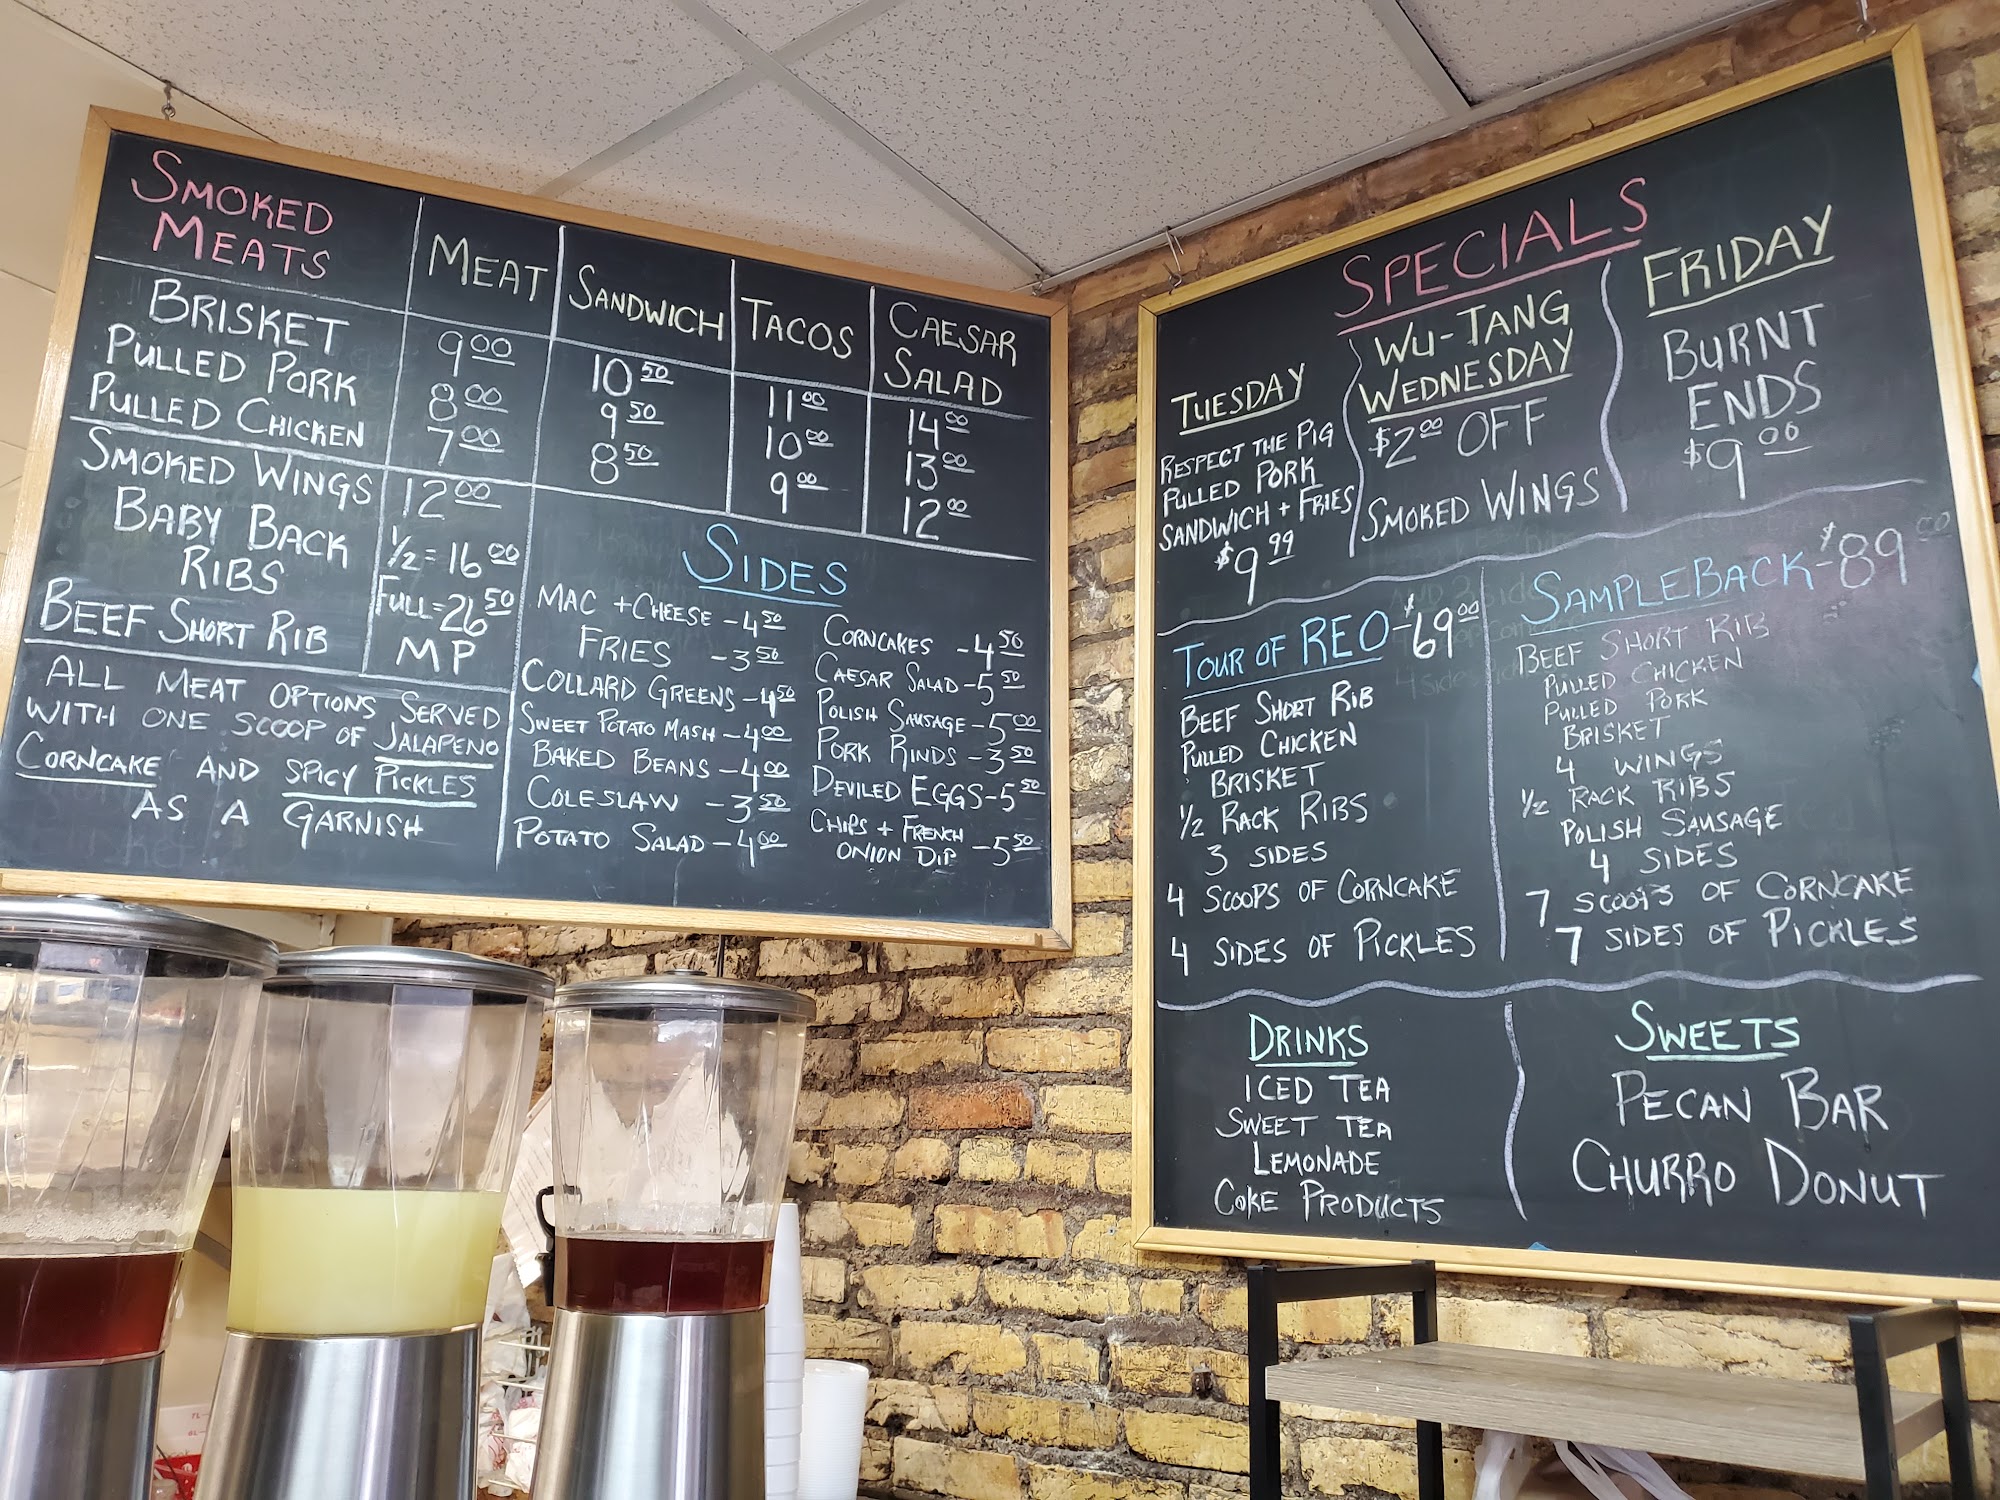 SMOKED
MEATS
MEAT
SANDWICH
TACOS
CAESAR
SALAD
BRISKET 9 00 10 50 11 00 14 00
PULLED PORK 8 00 9 50 10 00 13 00
PULLED CHICKEN 7 00 8 50 9 00 12 00
SMOKED WINGS 12 00
BABY BACK 1/2 = 16 00
RIBS FULL = 26 50
BEEF SHORT RIB MP
ALL MEAT OPTIONS SERVED
WITH ONE SCOOP OF JALAPENO
CORNCAKE AND SPICY PICKLES
AS A GARNISH
SIDES
MAC + CHEESE - 4 50
FRIES - 3 50
COLLARD GREENS - 4 50
SWEET POTATO MASH - 4 00
BAKED BEANS - 4 00
COLESLAW - 3 50
POTATO SALAD - 4 00
CORNCAKES - 4 50
CAESAR SALAD - 5 50
POLISH SAUSAGE - 5 00
PORK RINDS - 3 50
DEVILED EGGS - 5 50
CHIPS + FRENCH
ONION DIP - 5 50
SPECIALS
TUESDAY
RESPECT THE PIG
PULLED PORK
SANDWICH + FRIES
$9 99
WU-TANG
WEDNESDAY
$2 00 OFF
SMOKED WINGS
FRIDAY
BURNT
ENDS
$9 00
TOUR OF REO - $69 00
BEEF SHORT RIB
PULLED CHICKEN
BRISKET
1/2 RACK RIBS
3 SIDES
4 SCOOPS OF CORNCAKE
4 SIDES OF PICKLES
SAMPLEBACK - $89 00
BEEF SHORT RIB
PULLED CHICKEN
PULLED PORK
BRISKET
4 WINGS
1/2 RACK RIBS
POLISH SAUSAGE
4 SIDES
7 SCOOPS OF CORNCAKE
7 SIDES OF PICKLES
DRINKS
ICED TEA
SWEET TEA
LEMONADE
COKE PRODUCTS
SWEETS
PECAN BAR
CHURRO DONUT